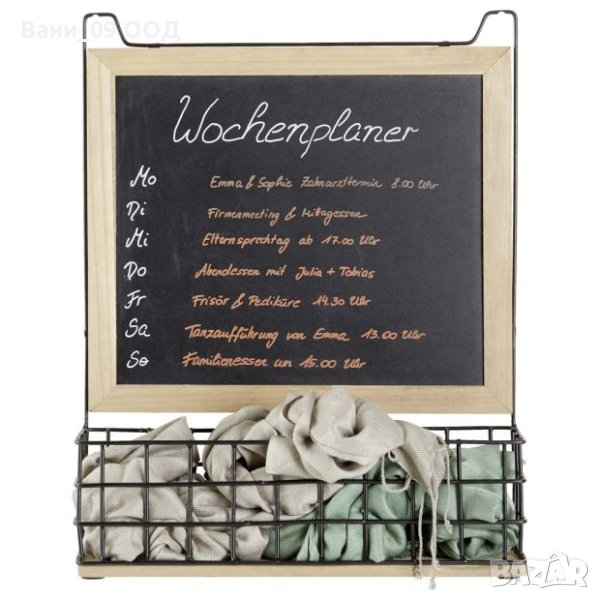 Вани_09 ООД
Wochenplaner
Mo Emma & Sophie Zahnarzttermin 8.00 Uhr
Di Firmenmeeting & Mittagessen
Mi Elternsprechtag ab 17.00 Uhr
Do Abendessen mit Julia + Tobias
Fr Frisör & Pediküre 14.30 Uhr
Sa Tanzaufführung von Emma 13.00 Uhr
So Familienessen um 15.00 Uhr
BAZAR